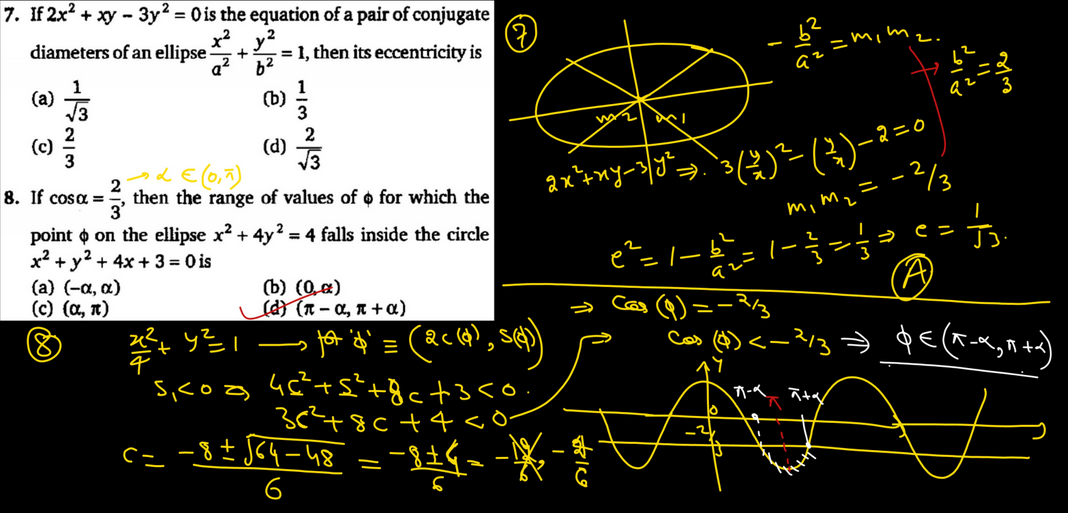 7. If 2x² + xy − 3y² = 0 is the equation of a pair of conjugate
diameters of an ellipse x²/a² + y²/b² = 1, then its eccentricity is
(a) 1/√3 (b) 1/3
(c) 2/3 (d) 2/√3
→ α ∈ (0, π)
8. If cosα = 2/3, then the range of values of ϕ for which the
point ϕ on the ellipse x² + 4y² = 4 falls inside the circle
x² + y² + 4x + 3 = 0 is
(a) (−α, α) (b) (0, α)
(c) (α, π) (d) (π − α, π + α)
⑦
m₂ m₁
− b²/a² = m₁ m₂.
→ b²/a² = 2/3
2x² + xy − 3y² ⇒. 3(y/x)² − (y/x) − 2 = 0
m₁ m₂ = −2/3
e² = 1 − b²/a² = 1 − 2/3 = 1/3 ⇒ e = 1/√3.
Ⓐ
⑧
x²/4 + y² = 1 → pt 'ϕ' ≡ (2c(ϕ), s(ϕ))
S₁ < 0 ⇒ 4c² + s² + 8c + 3 < 0.
3c² + 8c + 4 < 0
c = (−8 ± √(64 − 48))/6 = (−8 ± 4)/6 = −12/6, −4/6
⇒ cos(ϕ) = −2/3
cos(ϕ) < −2/3 ⇒ ϕ ∈ (π−α, π+α)
y
π−α π+α
0
−2/3